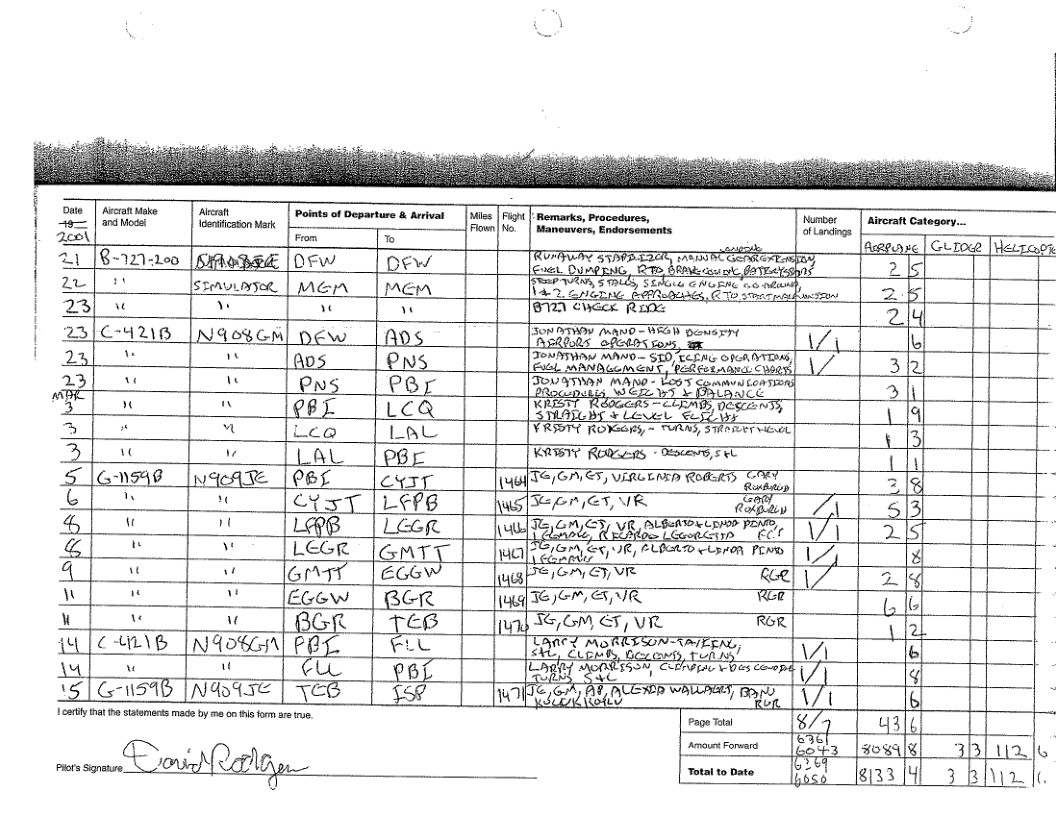 Date Aircraft Make and Model Aircraft Identification Mark Points of Departure & Arrival Miles Flown Flight No. Remarks, Procedures, Maneuvers, Endorsements Number of Landings Aircraft Category...
19 2001 From To AIRPLANE GLIDER HELICOPTE
21 B-727-200 DFW DFW RUNAWAY STABILIZER, MANUAL GEAR EXTENSION, 2 5
FUEL DUMPING, RTO,
22 " SIMULATOR MEM MEM STEEP TURNS, STALLS, SINGLE ENGINE GO AROUND, 2 5
1 & 2 ENGINE APPROACHES, RTO START MALFUNCTION
23 " " " " B727 CHECK RIDE 2 4
23 C-421B N908GM DFW ADS JONATHAN MANO - HIGH DENSITY 1/1 6
AIRPORT OPERATIONS,
23 " " ADS PNS JONATHAN MANO - SID, ICING OPERATIONS, 1/ 3 2
FUEL MANAGEMENT, PERFORMANCE CHARTS
23 " " PNS PBI JONATHAN MANO - LOST COMMUNICATIONS 3 1
PROCEDURES WEIGHT & BALANCE
MAR
3 " " PBI LCQ KRISTY RODGERS - CLIMBS, DESCENTS, 1 9
STRAIGHT & LEVEL FLIGHT
3 " " LCQ LAL KRISTY RODGERS, - TURNS, STRAIGHT & LEVEL 1 3
3 " " LAL PBI KRISTY RODGERS - DESCENTS, S&L 1 1
5 G-1159B N909JE PBI CYJT 1464 JE, GM, ET, VIRGINIA ROBERTS GARY ROXBURGH 3 8
6 " " CYJT LFPB 1465 JE, GM, ET, VR GARY ROXBURGH 1/ 5 3
8 " " LFPB LEGR 1466 JE, GM, ET, VR, ALBERTO & LINDA PINTO, 1/1 2 5
1 FEMALE, RICARDO LEGORETTA
8 " " LEGR GMTT 1467 JE, GM, ET, VR, ALBERTO & LINDA PINTO 1/1 8
1 FEMALE
9 " " GMTT EGGW 1468 JE, GM, ET, VR RGR 1/ 2 8
11 " " EGGW BGR 1469 JE, GM, ET, VR RGR 6 6
11 " " BGR TEB 1470 JE, GM, ET, VR RGR 1 2
14 C-421B N908GM PBI FLL LARRY MORRISON - TAXIING, 1/1 6
S&L, CLIMBS, DESCENTS, TURNS
14 " " FLL PBI LARRY MORRISON, CLIMBING & DESCENDING 1/1 8
TURNS, S&L
15 G-1159B N909JE TEB ISP 1471 JE, GM, AP, ALEXIA WALLAERT, BANU 1/1 6
RGR
I certify that the statements made by me on this form are true.
Page Total 8/7 43 6
Amount Forward 6361 6043 8089 8 3 3 112 6
Total to Date 6369 6050 8133 4 3 3 112
Pilot's Signature David Rodgers